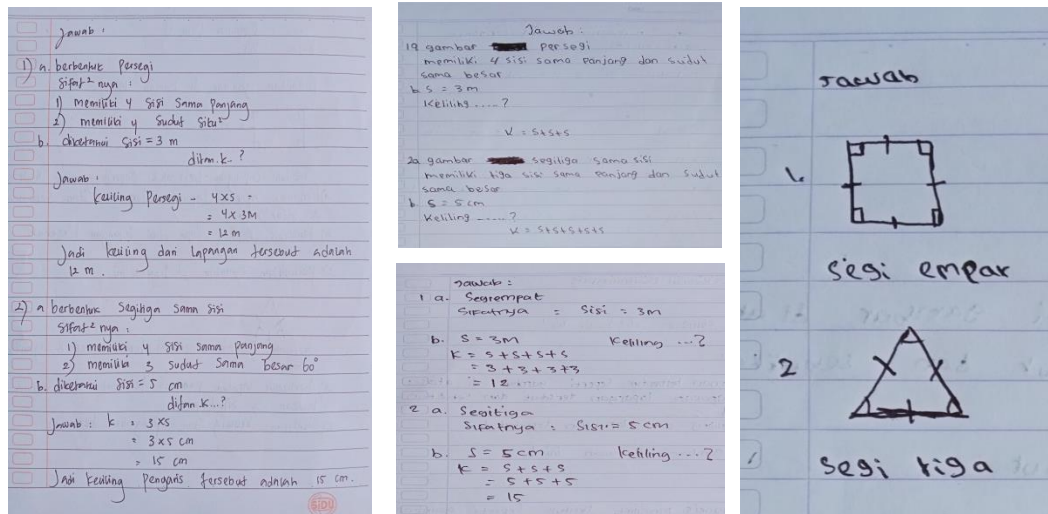 Jawab :
1) a. berbentuk Persegi
Sifat² nya :
1) memiliki 4 Sisi Sama Panjang
2) memiliki 4 Sudut Siku²
b. diketahui Sisi = 3 m
ditan k. ?
Jawab :
keliling Persegi = 4 x s =
= 4 x 3M
= 12 m
Jadi keliling dari lapangan tersebut adalah
12 m.
2) a berbentuk Segitiga Sama Sisi
Sifat² nya :
1) memiliki 4 Sisi Sama Panjang
2) memiliki 3 Sudut Sama besar 60°
b. diketahui Sisi = 5 cm
ditan k...?
Jawab : k = 3 x s
= 3 x 5 cm
= 15 cm
Jadi keliling Pengaris tersebut adalah 15 cm.
SIDU
Jaweb :
1a gambar persegi
memiliki 4 sisi sama panjang dan sudut
sama besar
b s = 3m
Keliling .....?
K = s+s+s
2a gambar segitiga sama sisi
memiliki tiga sisi sama panjang dan sudut
sama besar
b s = 5 cm
Keliling .....?
K = s+s+s+s+s
Jawab :
1 a. Segiempat
Sifatnya = Sisi = 3m
b. S = 3M Keliling ...?
K = s+s+s+s
= 3+3+3+3
= 12
2 a. Segitiga
Sifatnya : Sisi = 5 cm
b. S = 5 cm Keliling ...?
K = s+s+s
= 5+5+5
= 15
Jawab
1.
Segi empar
2
Segi tiga